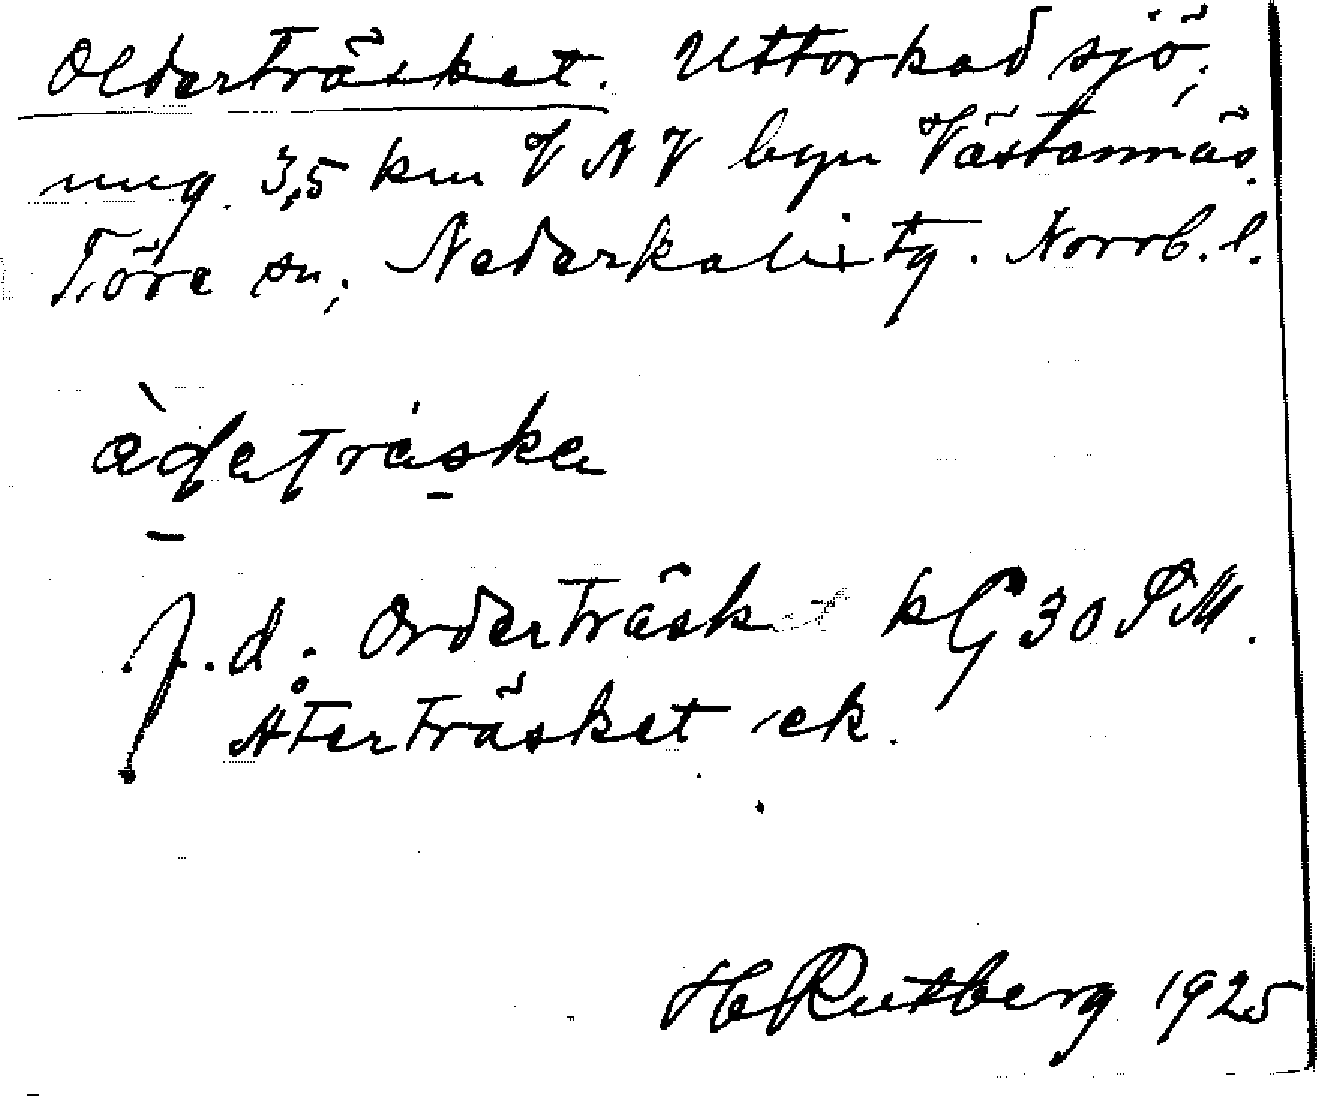 Olderträsket. Uttorkad sjö,
ung. 3,5 km VNV byn Västannäs.
Töre sn, Nederkalix tg. Norrb. l.
J.d. Orderträsk kG 30 PM.
Återträsket ek.
H Rutberg 1925